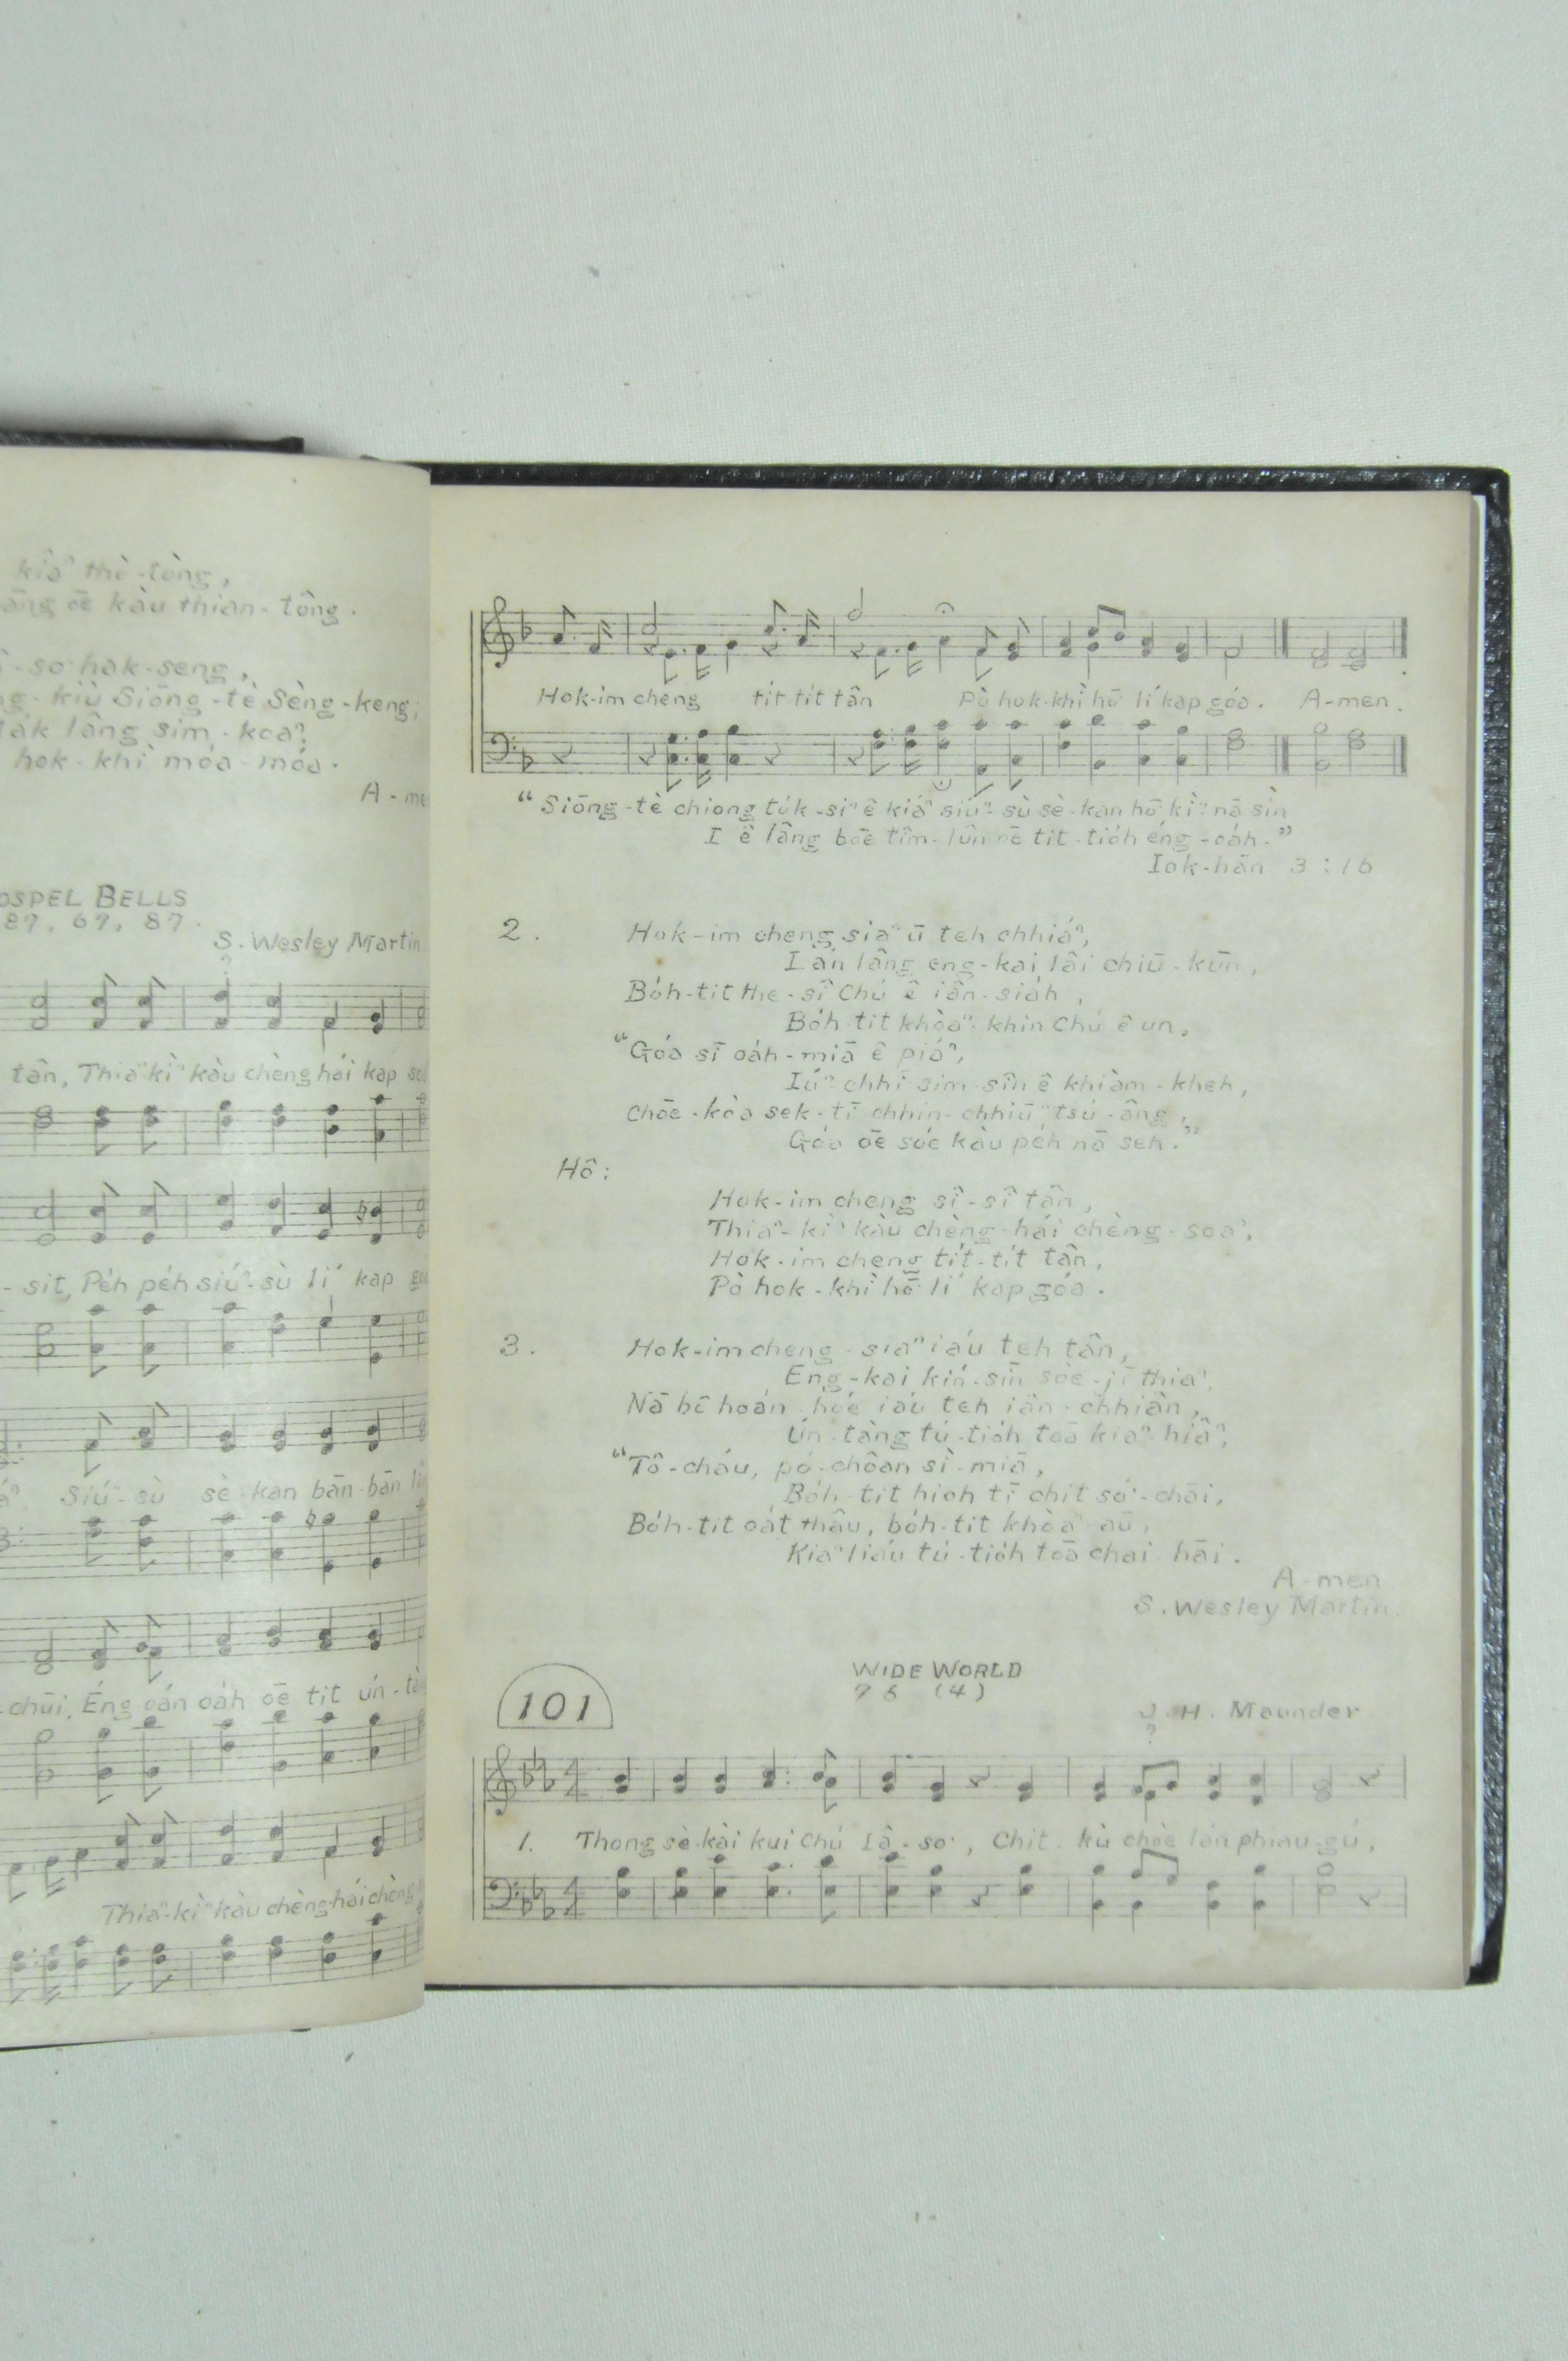 kiâⁿ thè-tòng,
āng ōe kàu thian-tông.
-so͘ hak-seng,
kiù Siōng-tè Sèng-keng;
lâng sim-koaⁿ,
hok-khì móa-móa.
A-me
OSPEL BELLS
87, 67, 87.
S. Wesley Martin
?
tân, Thiaⁿ-kìⁿ kàu chèng hái kap
-sit, Pe̍h pe̍h siúⁿ-sù lí kap
Siúⁿ-sù sè-kan bān-bān
-chūi, Éng oán oa̍h ōe tit ún-
Thiaⁿ-kìⁿ kàu chèng-hái chèng
Hok-im cheng ti̍t-ti̍t tân Pò hok-khì hō͘ lí kap góa. A-men.
"Siōng-tè chiong to̍k-siⁿ ê kiáⁿ siúⁿ-sù sè-kan hō͘-kìⁿ nā sìn
I ê lâng bōe tîm-lûn ōe tit-tio̍h éng-oa̍h."
Iok-hān 3:16
2. Hok-im cheng siaⁿ ū teh chhiáⁿ,
Lán lâng eng-kai lâi chiū-kūn,
Bo̍h-tit the-sî Chú ê iân-sia̍h,
Bo̍h-tit khòaⁿ-khin Chú ê un.
"Góa sī oa̍h-miā ê piáⁿ,
Iúⁿ chhī sim-sîn ê khiàm-kheh,
Chōe-kòa sek-tī chhin-chhiūⁿ tsú-âng,
Góa ōe sóe kàu pe̍h nā seh."
Hô:
Hok-im cheng sî-sî tân,
Thiaⁿ-kìⁿ kàu chèng-hái chèng-soaⁿ,
Hok-im cheng ti̍t-ti̍t tân,
Pò hok-khì hō͘ lí kap góa.
3. Hok-im cheng-siaⁿ iáu teh tân,
Eng-kai kín-sīn sòe-jī thiaⁿ,
Nā bē hoán-hóe iáu teh iân-chhiân,
Ún-tàng tú-tio̍h toā kiaⁿ-hiâⁿ,
"Tô-cháu, pó-choân sìⁿ-miā,
Bo̍h-tit hioh tī chit só͘-chāi,
Bo̍h-tit oa̍t thâu, bo̍h-tit khòaⁿ-āu,
Kiaⁿ liáu tú-tio̍h toā chai-hāi.
A-men
S. Wesley Martin.
WIDE WORLD
101
76 (4)
J. H. Maunder
?
1. Thong sè-kài kui Chú Iâ-so͘, Chit kù chōe lán phiau-gú,